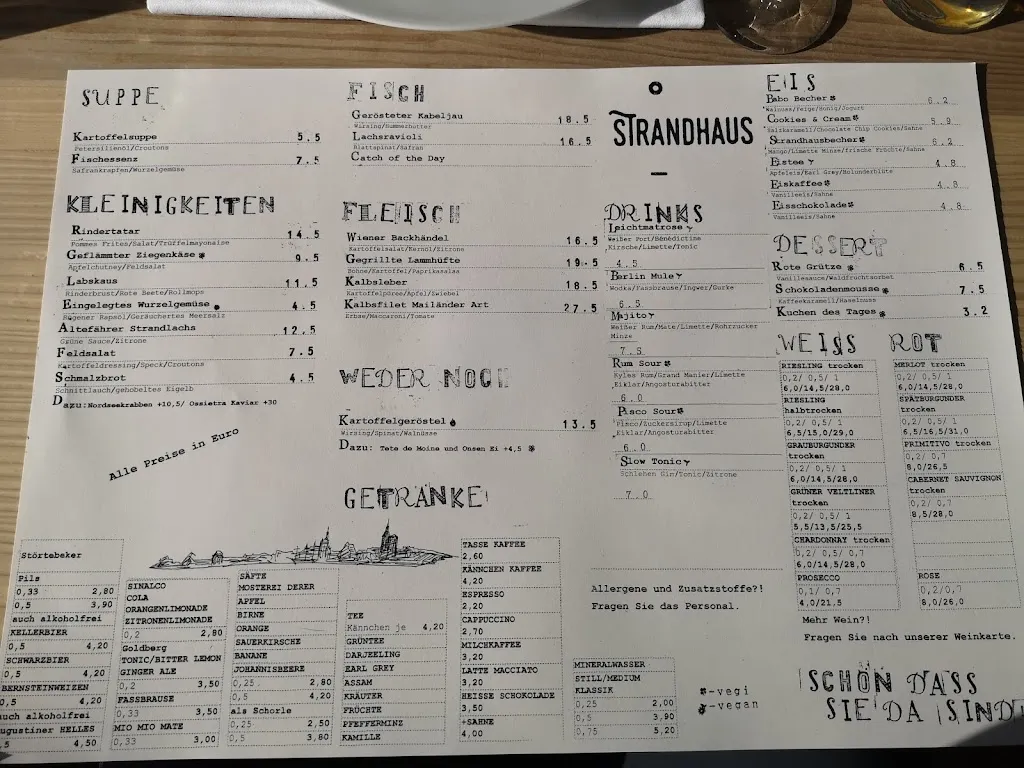 SUPPE
Kartoffelsuppe 5.5
Petersilienöl/Croutons
Fischessenz 7.5
Safrankrapfen/Wurzelgemüse
KLEINIGKEITEN
Rindertatar 14.5
Pommes Frites/Salat/Trüffelmayonaise
Geflämmter Ziegenkäse 9.5
Apfelchutney/Feldsalat
Labskaus 11.5
Rinderbrust/Rote Beete/Rollmops
Eingelegtes Wurzelgemüse 4.5
Rügener Rapsöl/Geräuchertes Meersalz
Altefährer Strandlachs 12.5
Grüne Sauce/Zitrone
Feldsalat 7.5
Kartoffeldressing/Speck/Croutons
Schmalzbrot 4.5
Schnittlauch/gehobeltes Eigelb
Dazu: Nordseekrabben +10,5/ Ossietra Kaviar +30
Alle Preise in Euro
FISCH
Gerösteter Kabeljau 18.5
Wirsing/Hummerbutter
Lachsravioli 16.5
Blattspinat/Safran
Catch of the Day
FLEISCH
Wiener Backhändel 16.5
Kartoffelsalat/Kernöl/Zitrone
Gegrillte Lammhüfte 19.5
Bohne/Kartoffel/Paprikasalsa
Kalbsleber 18.5
Kartoffelpüree/Apfel/Zwiebel
Kalbsfilet Mailänder Art 27.5
Erbse/Maccaroni/Tomate
WEDER NOCH
Kartoffelgeröstel 13.5
Wirsing/Spinat/Walnüsse
Dazu: Tete de Moine und Onsen Ei +4,5
GETRÄNKE
STRANDHAUS
DRINKS
Leichtmatrose
Weißer Port/Bénédictine
Kirsche/Limette/Tonic
4.5
Berlin Mule
Wodka/Fassbrause/Ingwer/Gurke
6.5
Mojito
Weißer Rum/Mate/Limette/Rohrzucker
Minze
7.5
Rum Sour
Ryles Rum/Grand Manier/Limette
Eiklar/Angosturabitter
6.0
Pisco Sour
Pisco/Zuckersirup/Limette
Eiklar/Angosturabitter
6.0
Slow Tonic
Schlehen Gin/Tonic/Zitrone
7.0
EIS
Babo Becher 6.2
Walnuss/Feige/Honig/Jogurt
Cookies & Cream 5.9
Salzkaramell/Chocolate Chip Cookies/Sahne
Strandhausbecher 6.2
Mango/Limette Minze/frische Früchte/Sahne
Eistee 4.8
Apfeleis/Earl Grey/Holunderblüte
Eiskaffee 4.8
Vanilleeis/Sahne
Eisschokolade 4.8
Vanilleeis/Sahne
DESSERT
Rote Grütze 6.5
Vanillesauce/Waldfruchtsorbet
Schokoladenmousse 7.5
Kaffeekaramell/Haselnuss
Kuchen des Tages 3.2
WEISS
RIESLING trocken
0,2/ 0,5/ 1
6,0/14,5/28,0
RIESLING
halbtrocken
0,2/ 0,5/ 1
6,5/15,0/29,0
GRAUBURGUNDER
trocken
0,2/ 0,5/ 1
6,0/14,5/28,0
GRÜNER VELTLINER
trocken
0,2/ 0,5/ 1
5,5/13,5/25,5
CHARDONNAY trocken
0,2/ 0,5/ 0,7
6,0/14,5/28,0
PROSECCO
0,1/ 0,7
4,0/21,5
ROT
MERLOT trocken
0,2/ 0,5/ 1
6,0/14,5/28,0
SPÄTBURGUNDER
trocken
0,2/ 0,5/ 1
6,5/16,5/31,0
PRIMITIVO trocken
0,2/ 0,7
8,0/26,5
CABERNET SAUVIGNON
trocken
0,2/ 0,7
8,5/28,0
ROSE
0,2/0,7
8,0/26,0
Mehr Wein?!
Fragen Sie nach unserer Weinkarte.
Störtebeker
Pils
0,33 2,80
0,5 3,90
auch alkoholfrei
KELLERBIER
0,5 4,20
SCHWARZBIER
0,5 4,20
BERNSTEINWEIZEN
0,5 4,20
auch alkoholfrei
Augustiner HELLES
0,5 4,50
SINALCO
COLA
ORANGENLIMONADE
ZITRONENLIMONADE
0,2 2,80
Goldberg
TONIC/BITTER LEMON
GINGER ALE
0,2 3,50
FASSBRAUSE
0,33 3,50
MIO MIO MATE
0,33 3,00
SÄFTE
MOSTEREI DERER
APFEL
BIRNE
ORANGE
SAUERKIRSCHE
BANANE
JOHANNISBEERE
0,25 2,80
0,5 4,20
als Schorle
0,25 2,50
0,5 3,80
TEE
Kännchen je 4,20
GRÜNTEE
DARJEELING
EARL GREY
ASSAM
KRÄUTER
FRÜCHTE
PFEFFERMINZ
KAMILLE
TASSE KAFFEE
2,60
KÄNNCHEN KAFFEE
4,20
ESPRESSO
2,20
CAPPUCCINO
2,70
MILCHKAFFEE
3,20
LATTE MACCIATO
3,20
HEISSE SCHOKOLADE
3,50
+SAHNE
4,00
MINERALWASSER
STILL/MEDIUM
KLASSIK
0,25 2,00
0,5 3,90
0,75 5,20
Allergene und Zusatzstoffe?!
Fragen Sie das Personal.
-vegi
-vegan
SCHÖN DASS
SIE DA SIND